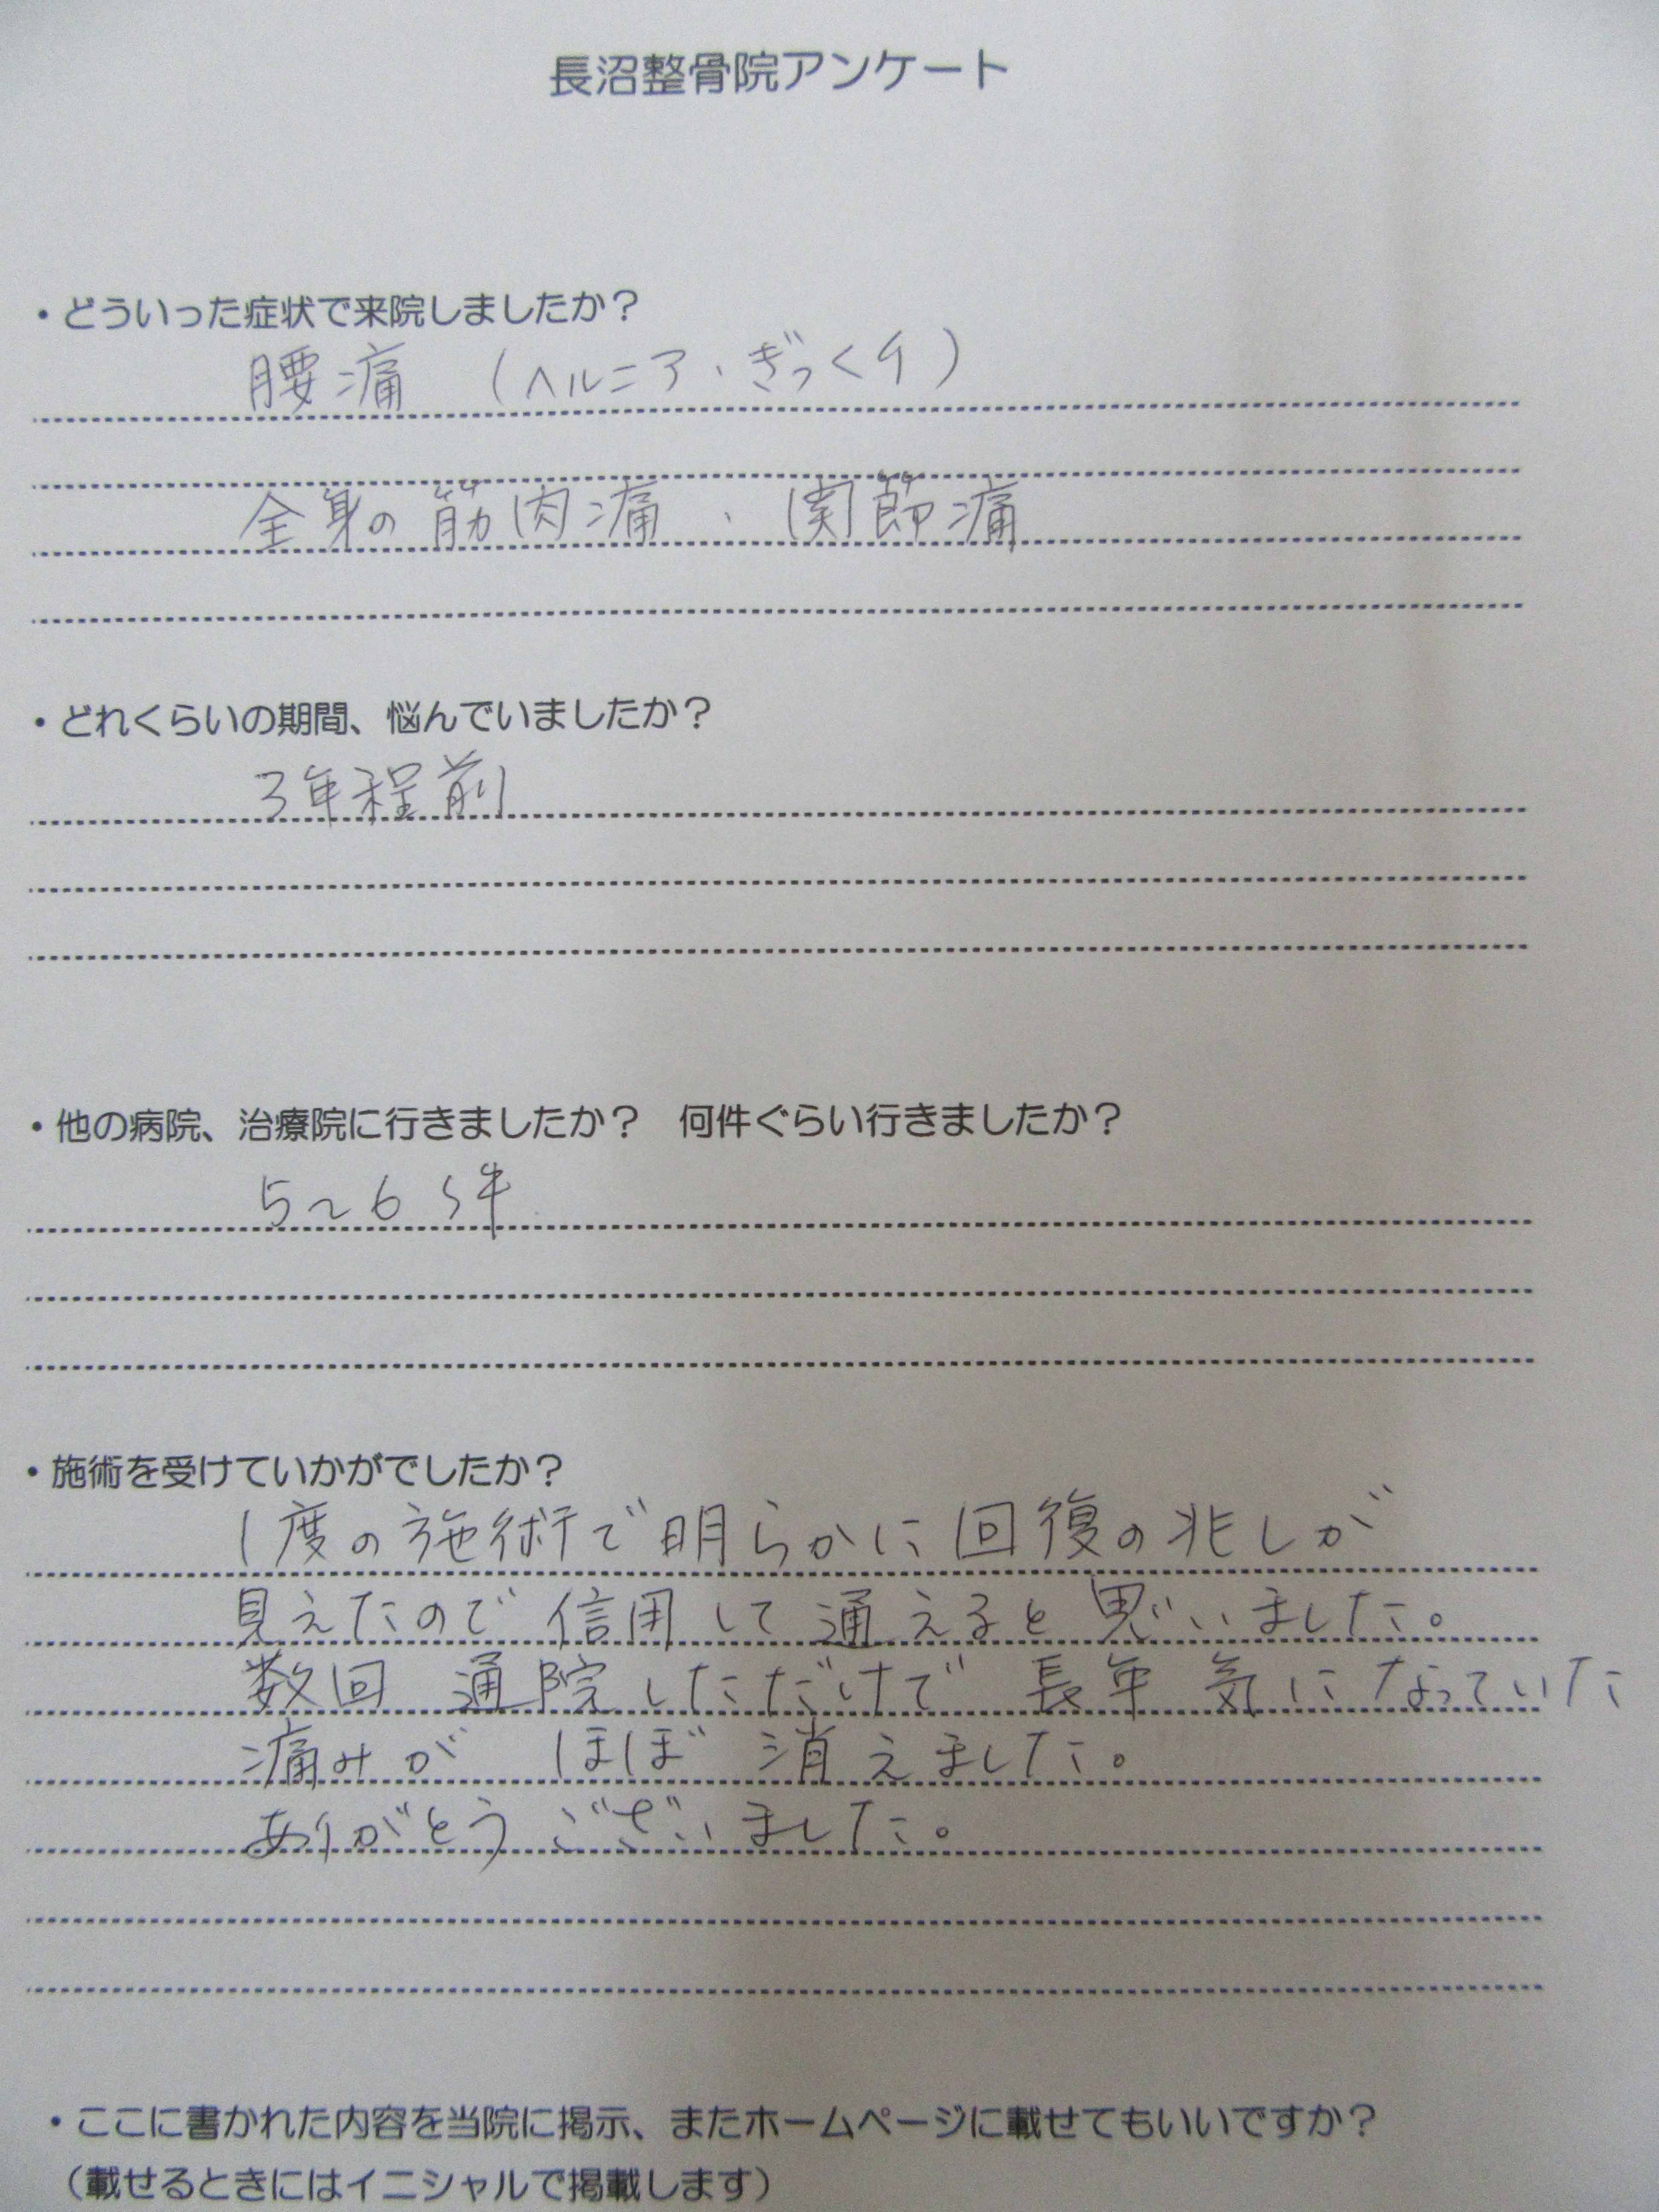 長沼整骨院アンケート
・どういった症状で来院しましたか？
腰痛 （ヘルニア、ぎっくり）
全身の筋肉痛、関節痛
・どれくらいの期間、悩んでいましたか？
3年程前
・他の病院、治療院に行きましたか？ 何件ぐらい行きましたか？
5～6件
・施術を受けていかがでしたか？
1度の施術で明らかに回復の兆しが
見えたので信用して通えると思いました。
数回通院しただけで長年気になっていた
痛みがほぼ消えました。
ありがとうございました。
・ここに書かれた内容を当院に掲示、またホームページに載せてもいいですか？
（載せるときにはイニシャルで掲載します）